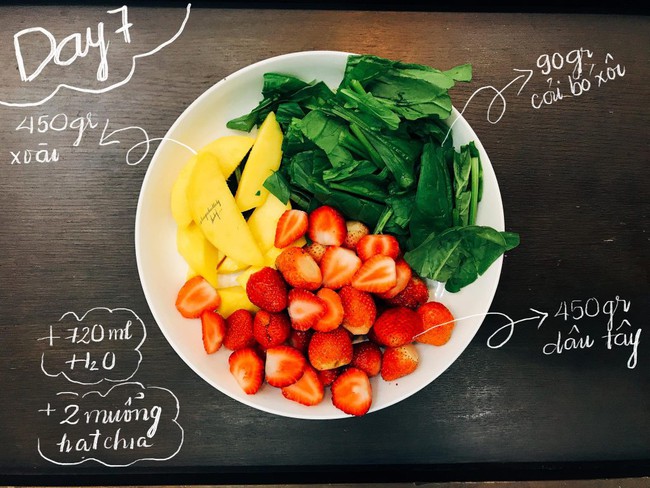 Day 7
90gr
cải bó xôi
450gr
xoài
450gr
dâu tây
+ 720 ml
H2O
+ 2 muỗng
hạt chia